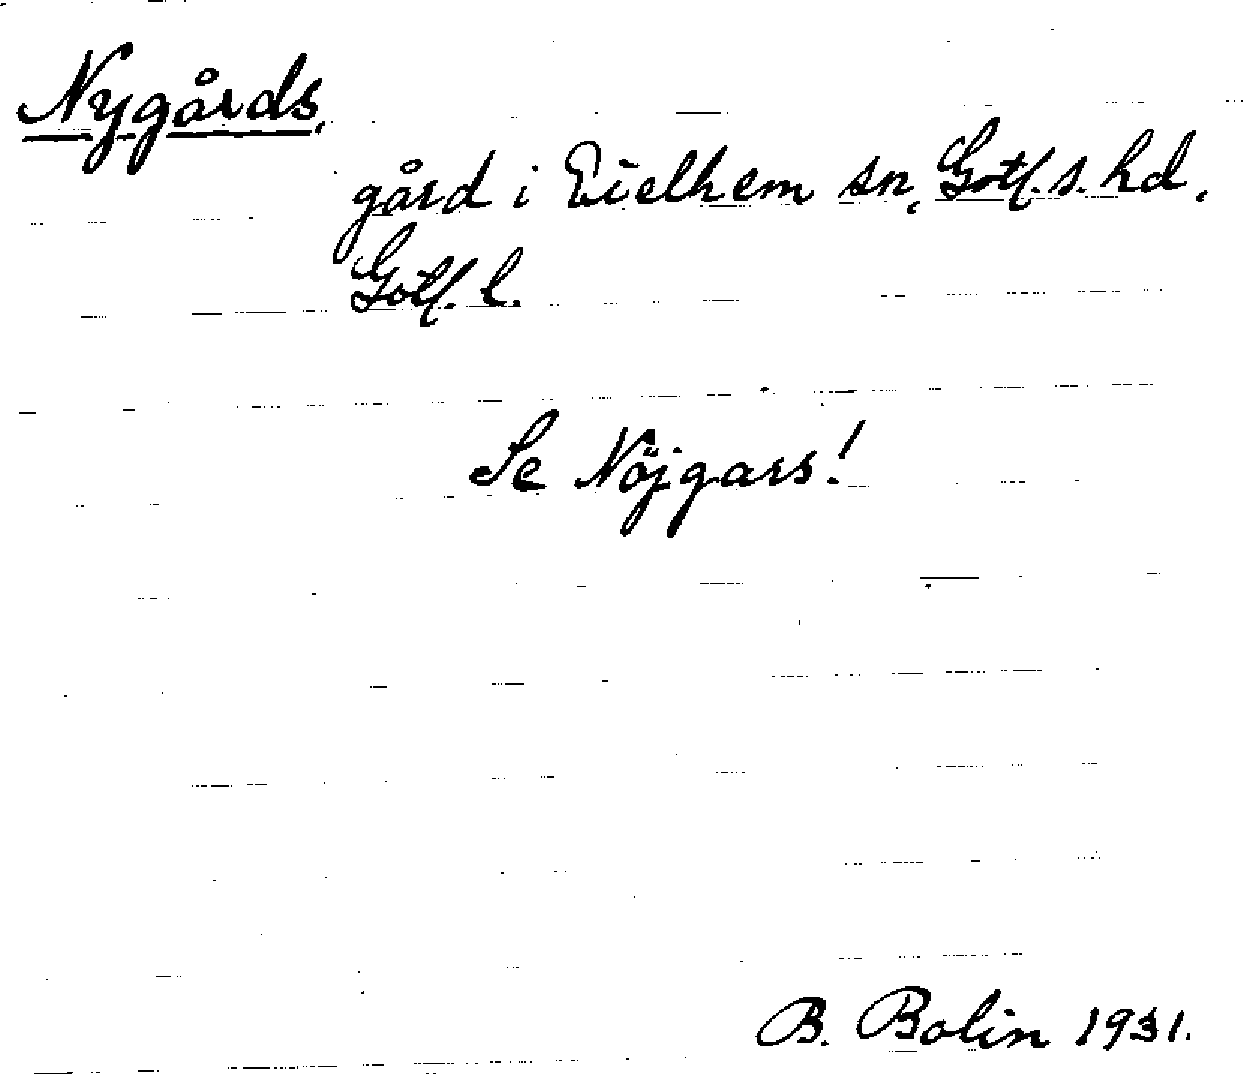 Nygårds,
gård i Eielhem sn, Gotl. s. hd,
Gotl. l.
Se Nöjgars!
B. Bolin 1931.